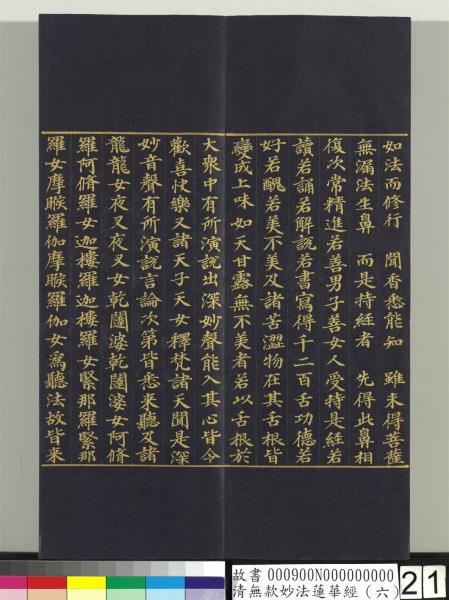 如法而修行　聞香悉能知　雖未得菩薩
無漏法生鼻　而是持經者　先得此鼻相
復次常精進若善男子善女人受持是經若
讀若誦若解說若書寫得千二百舌功德若
好若醜若美不美及諸苦澀物在其舌根皆
變成上味如天甘露無不美者若以舌根於
大衆中有所演說出深妙聲能入其心皆令
歡喜快樂又諸天子天女釋梵諸天聞是深
妙音聲有所演說言論次第皆悉來聽及諸
龍龍女夜叉夜叉女乾闥婆乾闥婆女阿脩
羅阿脩羅女迦樓羅迦樓羅女緊那羅緊那
羅女摩睺羅伽摩睺羅伽女爲聽法故皆來
故書 000900N000000000
清無款妙法蓮華經（六）
21